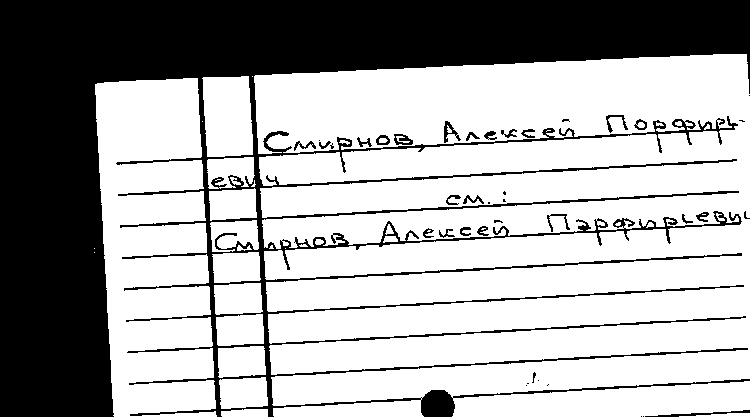 Смирнов, Алексей Порфирь-
евич
см.:
Смирнов, Алексей Парфирьевич